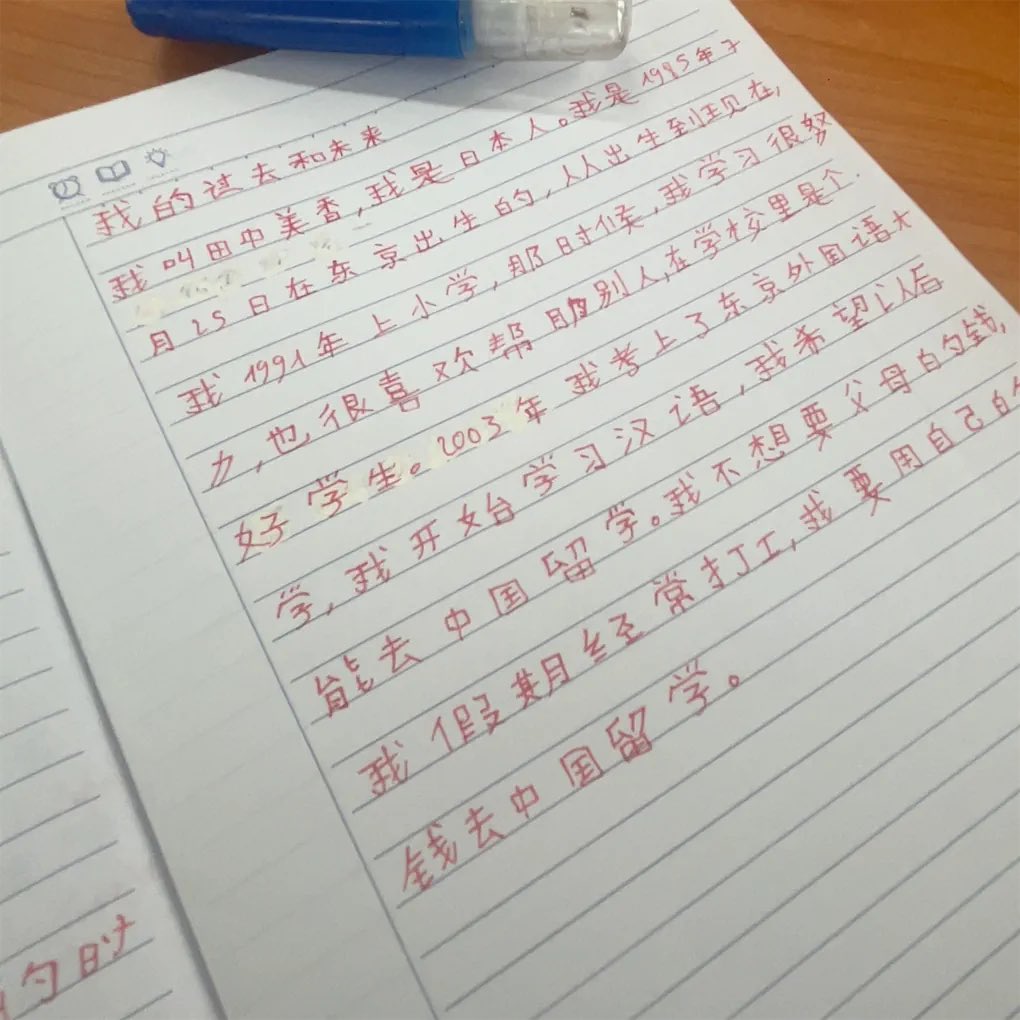 我的过去和未来
我叫田中美香,我是日本人。我是1985年
月25日在东京出生的,从出生到现在,
我1991年上小学,那时候,我学习很努
力,也很喜欢帮助别人,在学校里是个
好学生。2003年我考上了东京外国语大
学,我开始学习汉语,我希望以后
能去中国留学。我不想要父母的钱,
我假期经常打工,我要用自己的
钱去中国留学。
的时